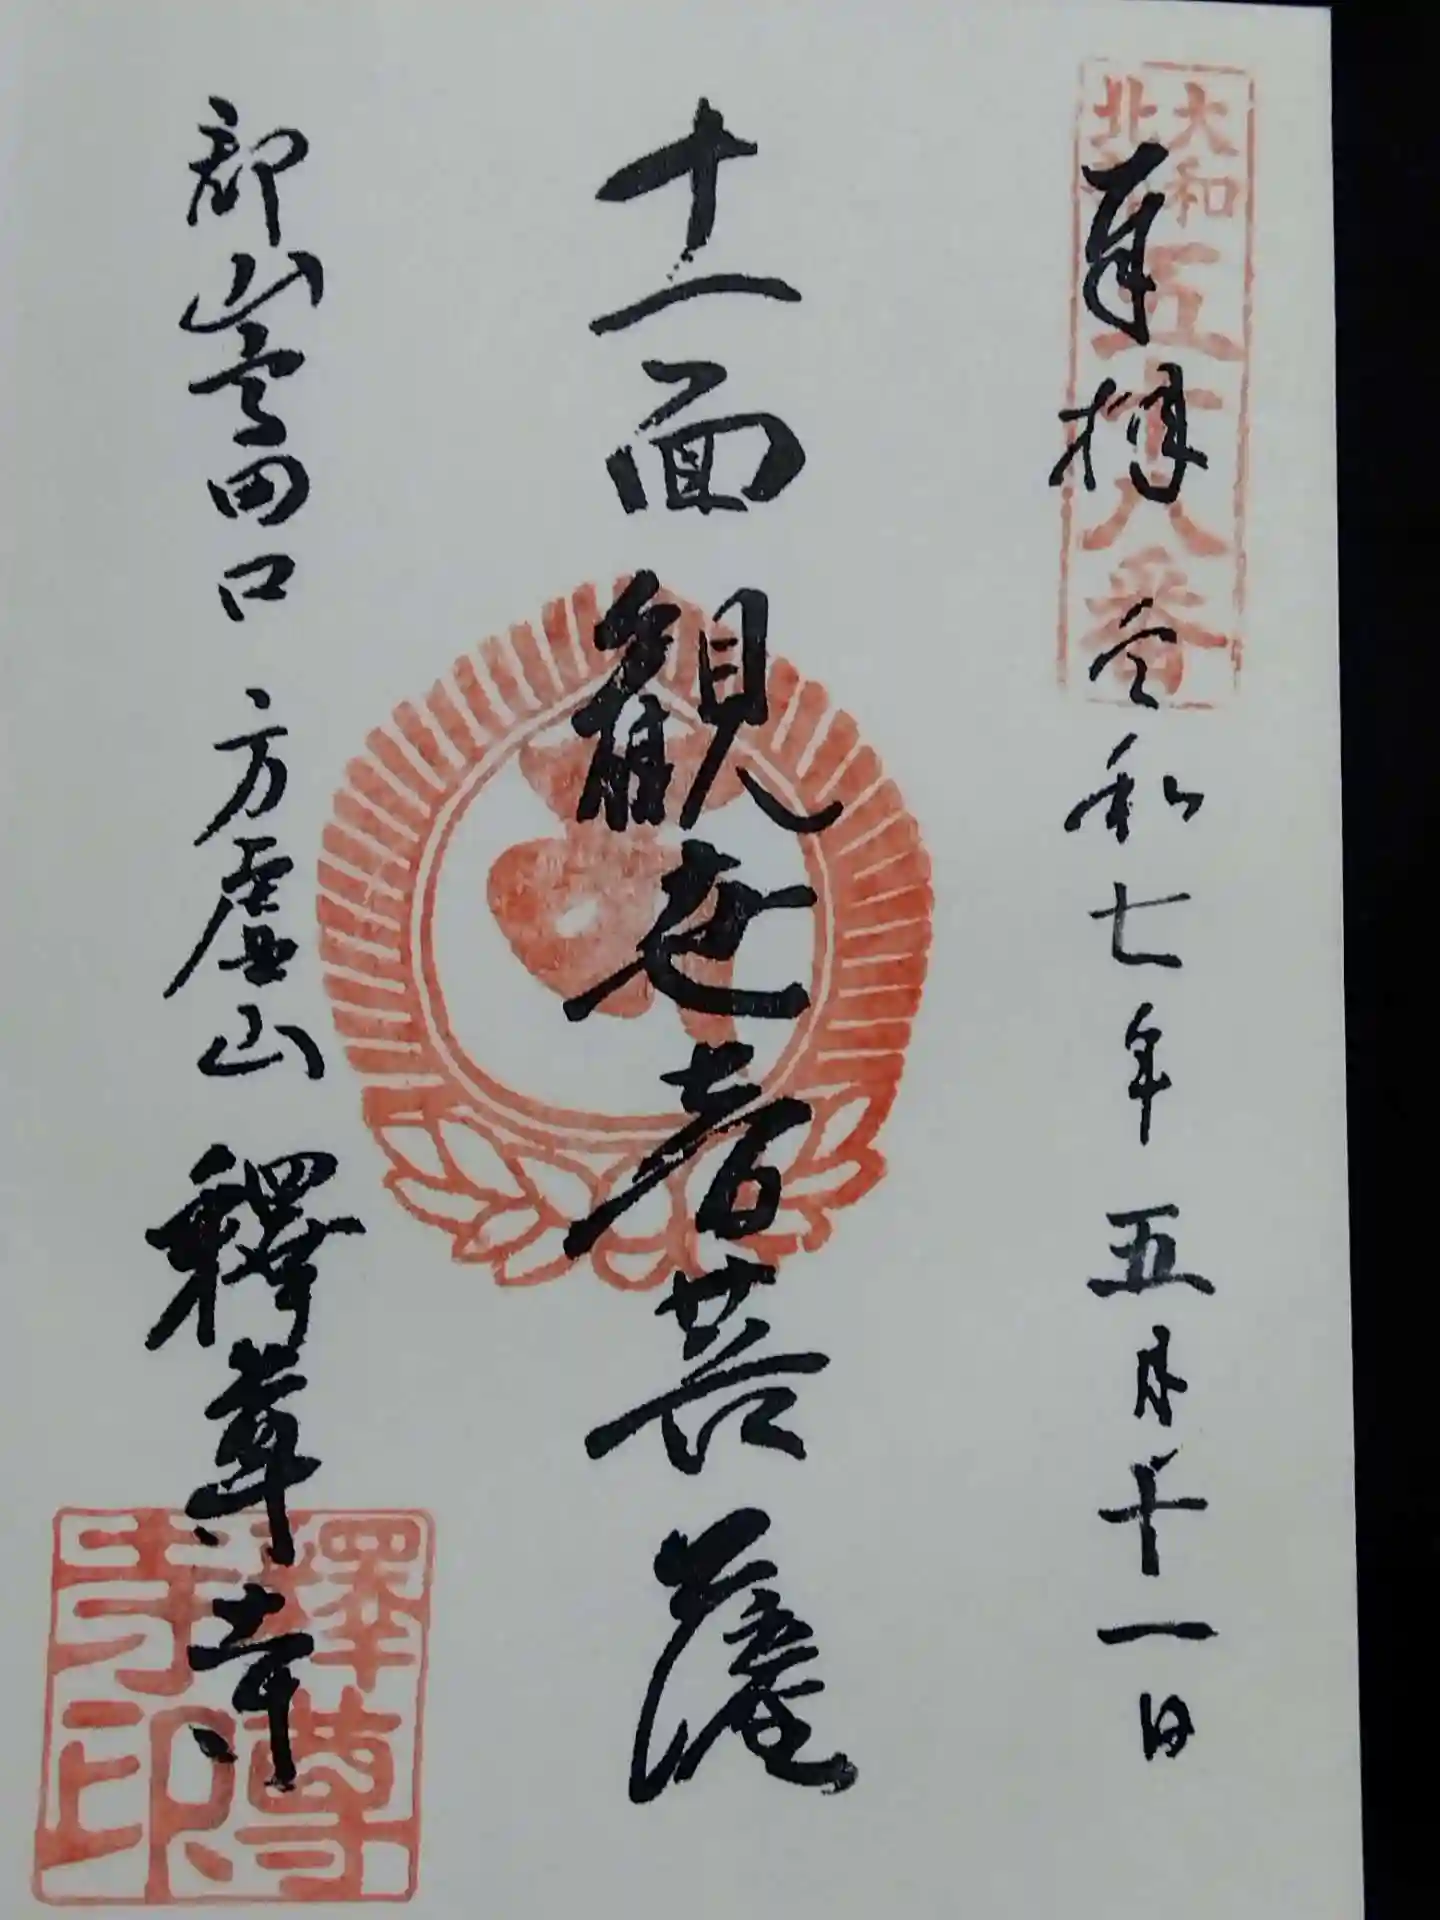 大和
北部
五十八番
奉拝 令和七年五月十一日
十一面観世音菩薩
郡山高田口 釋尊寺
釋尊
寺印